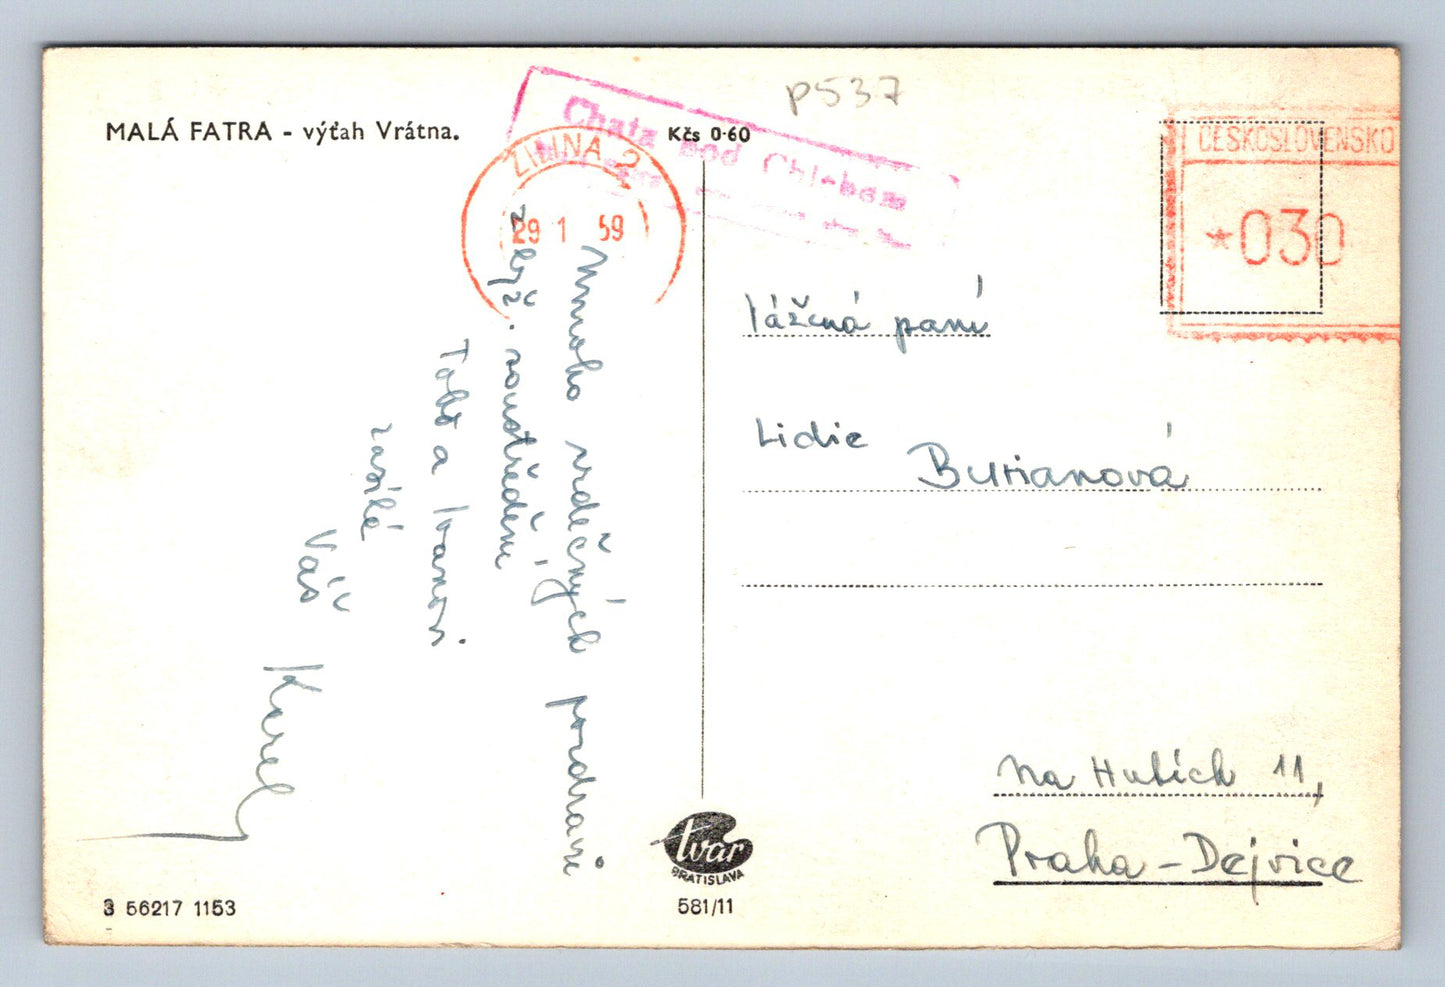 MALÁ FATRA - výťah Vrátna.
Kčs 0·60
p537
Chata pod Chlebom
ŽILINA 2
29 1 59
ČESKOSLOVENSKO
*030
Mnoho srdečných pozdravů
z lyž. soustředění
Tobě a Ivanovi
zasílá
Váš
Karel
Vážená paní
Lidie
Burianová
Na Hutích 11,
Praha - Dejvice
tvar
BRATISLAVA
581/11
3 56217 1153